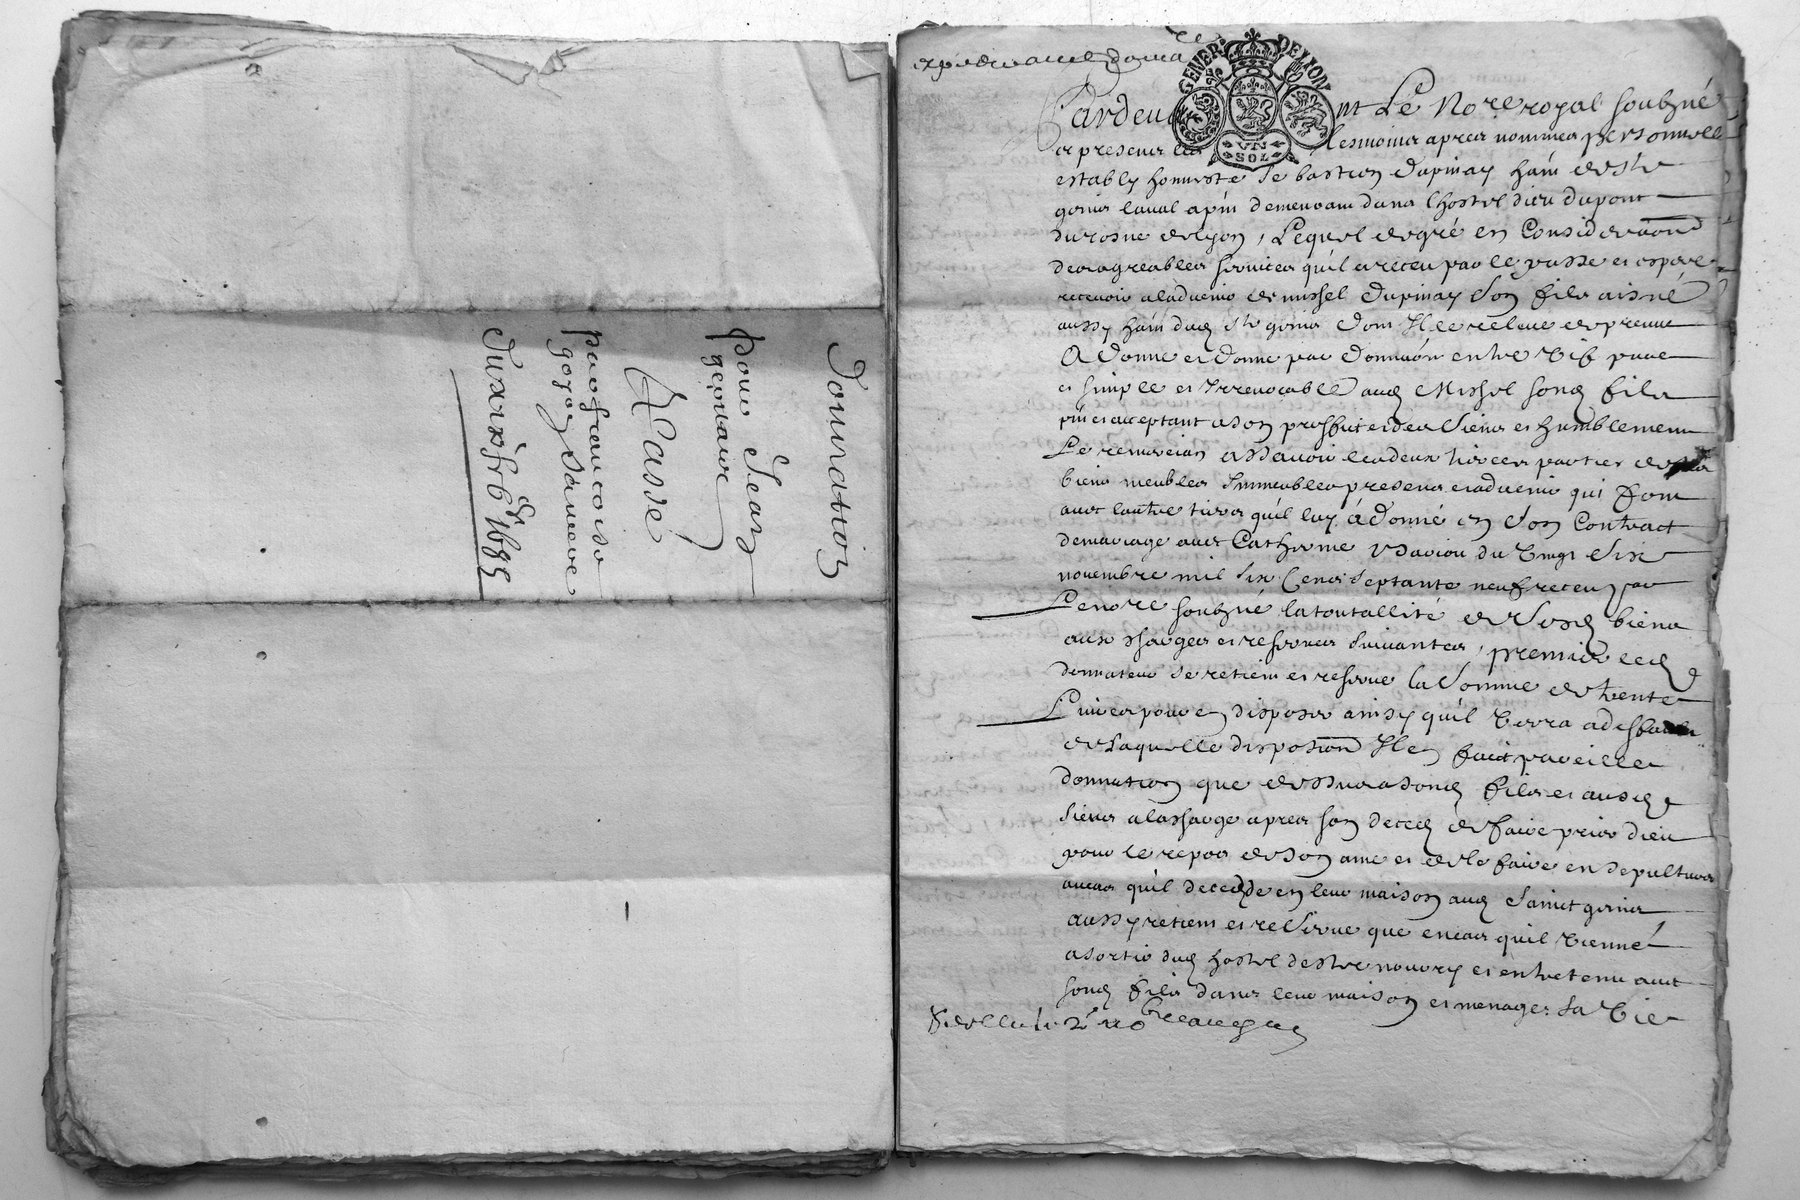 Donnation
pour Jean
gervaise
Cassé
par francoise
goyon sa mere
Du xxixe fr 1685
GENER DE LYON
VN
SOL
Pardeva nt Le No.re royal soubzné
et presens les tesmoins apres nommes personnell
estably honneste Sebastien Dupinay hãn de St
genis laval a pñt demeurant dans l'hostel dieu du pont
du rosne de lyon, Lequel de gré en Consideraõn
des agreables services qu'il a receu par le passe et espere
recevoir a ladvenir de missel Dupinay son fils aisné
aussy hãn dud St genis dont Il le releve de preuve
A donne et donne par donnaõn entre vifz pure
et simple et Irrevocable aud Missel sond fils
pñt et acceptant a son proffict et des siens et humblement
Le remercian assavoir les deux tierces parties de ses
biens meubles Immeubles presens et advenir qui font
avec lautre tiers qu'il luy a donné en son Contract
de mariage avec Catherine du vingt six
novembre mil six Cens septante neuf receu par
Le no.re soubzné la toutallité de sesd biens
aux charges et reserves suivantes, premier led
donnateur se retient et reserve la somme de trente
Livres pour en disposer ainsy qu'il verra a desfault
de laquelle disposion Il en faict pareille
donnation que dessus a sond fils et ausd
siens a la charge apres son deced de faire prier dieu
pour le repos de son ame et de le faire ensepulturer
au cas qu'il decedde en leur maison aud Sainct genis
aussy retient et reserve que en cas qu'il vienne
a sortir dud hostel destre nourry et entretenu avec
sond fils dans leur maison et menage sa vie